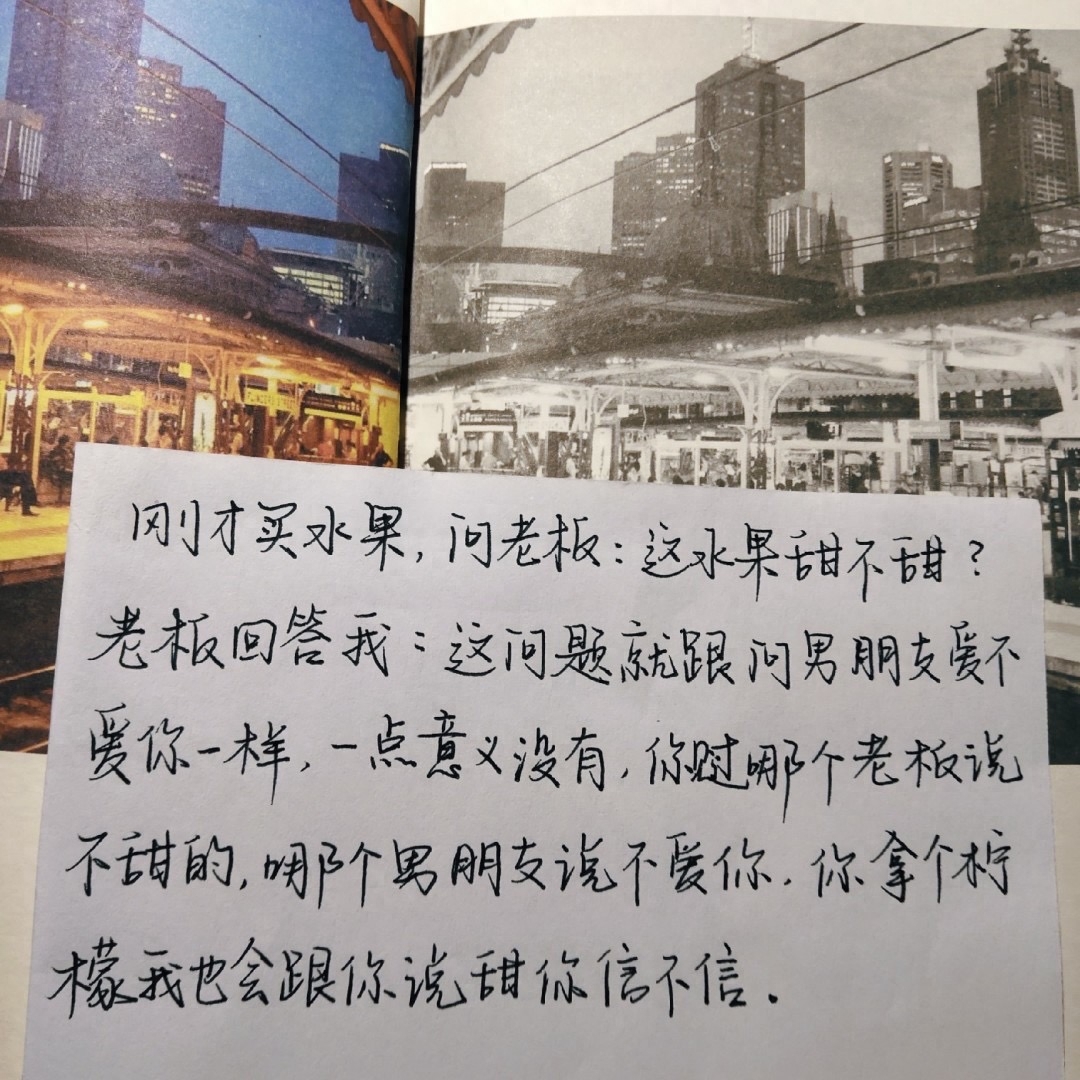 刚才买水果,问老板:这水果甜不甜?
老板回答我:这问题就跟问男朋友爱不
爱你一样,一点意义没有,你过哪个老板说
不甜的,哪个男朋友说不爱你.你拿个柠
檬我也会跟你说甜你信不信.